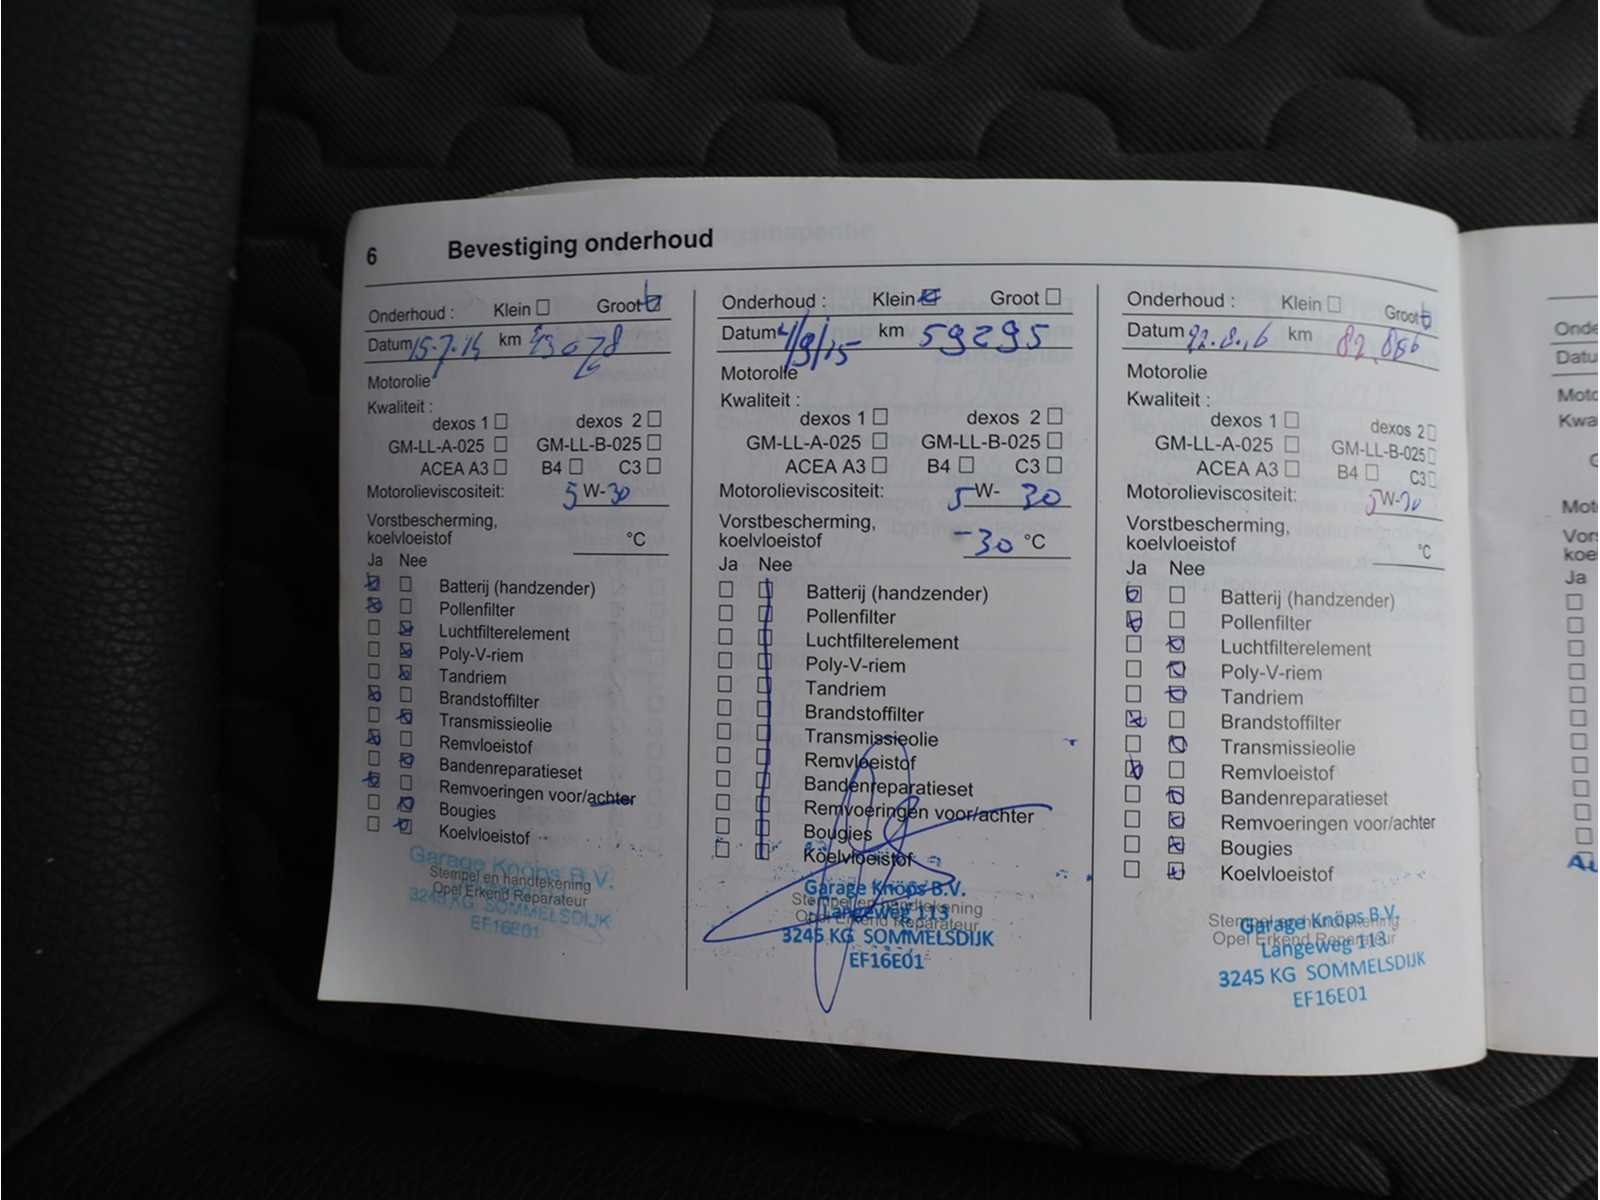 6 Bevestiging onderhoud
Onderhoud : Klein Groot
Datum 15-7-14 km
Motorolie
Kwaliteit :
dexos 1 dexos 2
GM-LL-A-025 GM-LL-B-025
ACEA A3 B4 C3
Motorolieviscositeit: 5 W- 30
Vorstbescherming,
koelvloeistof °C
Ja Nee
Batterij (handzender)
Pollenfilter
Luchtfilterelement
Poly-V-riem
Tandriem
Brandstoffilter
Transmissieolie
Remvloeistof
Bandenreparatieset
Remvoeringen voor/achter
Bougies
Koelvloeistof
Garage Knöps B.V.
Stempel en handtekening
Opel Erkend Reparateur
3245 KG SOMMELSDIJK
EF16E01
Onderhoud : Klein Groot
Datum 4/9/15 km 59295
Motorolie
Kwaliteit :
dexos 1 dexos 2
GM-LL-A-025 GM-LL-B-025
ACEA A3 B4 C3
Motorolieviscositeit: 5 W- 30
Vorstbescherming,
koelvloeistof -30 °C
Ja Nee
Batterij (handzender)
Pollenfilter
Luchtfilterelement
Poly-V-riem
Tandriem
Brandstoffilter
Transmissieolie
Remvloeistof
Bandenreparatieset
Remvoeringen voor/achter
Bougies
Koelvloeistof
Garage Knöps B.V.
Stempel en handtekening
Langeweg 113
Opel Erkend Reparateur
3245 KG SOMMELSDIJK
EF16E01
Onderhoud : Klein Groot
Datum km
Motorolie
Kwaliteit :
dexos 1 dexos 2
GM-LL-A-025 GM-LL-B-025
ACEA A3 B4 C3
Motorolieviscositeit: 5 W- 30
Vorstbescherming,
koelvloeistof °C
Ja Nee
Batterij (handzender)
Pollenfilter
Luchtfilterelement
Poly-V-riem
Tandriem
Brandstoffilter
Transmissieolie
Remvloeistof
Bandenreparatieset
Remvoeringen voor/achter
Bougies
Koelvloeistof
Stempel en handtekening
Garage Knöps B.V.
Opel Erkend Reparateur
Langeweg 113
3245 KG SOMMELSDIJK
EF16E01
Ja